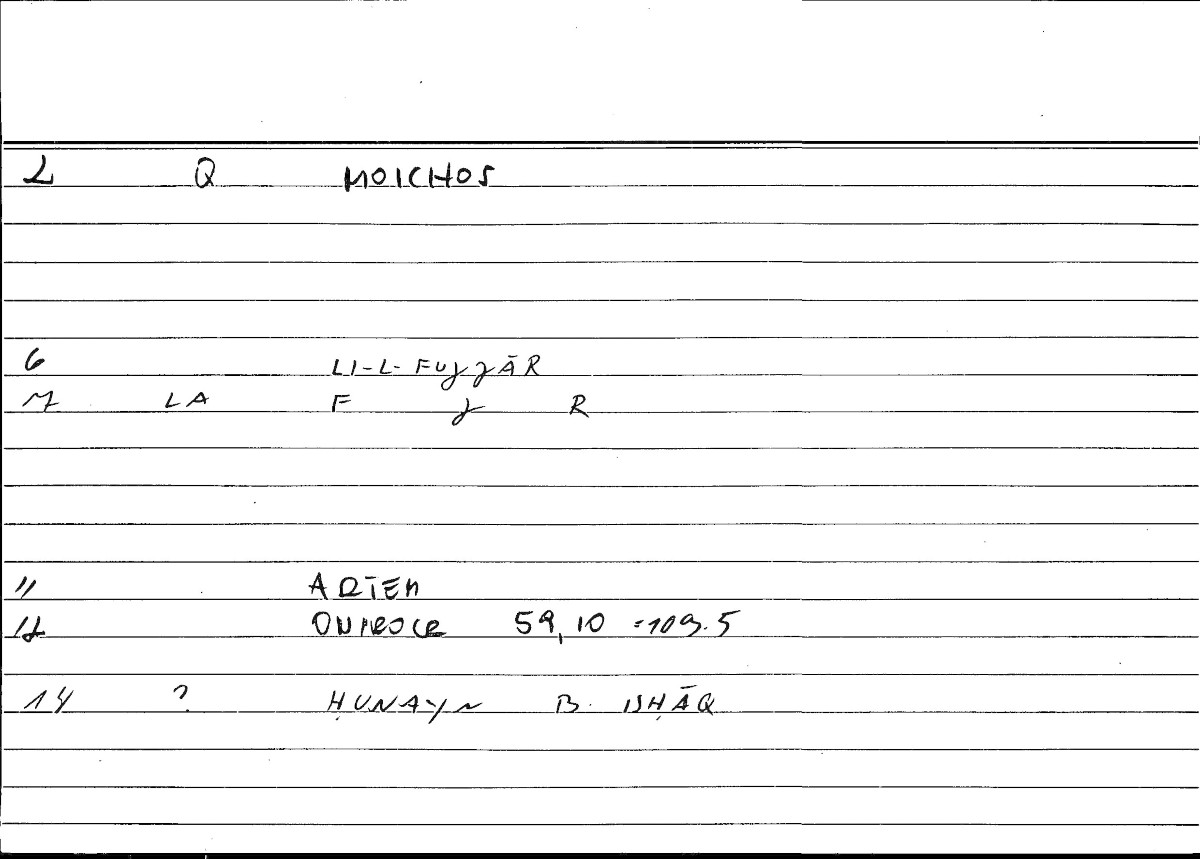 2 Q MOICHOS
6 LI-L-FUggĀR
7 LA F g R
11 ARTEM
12 ONIROCR 59,10 =109.5
14 ? ḤUNAYN B. ISḤĀQ